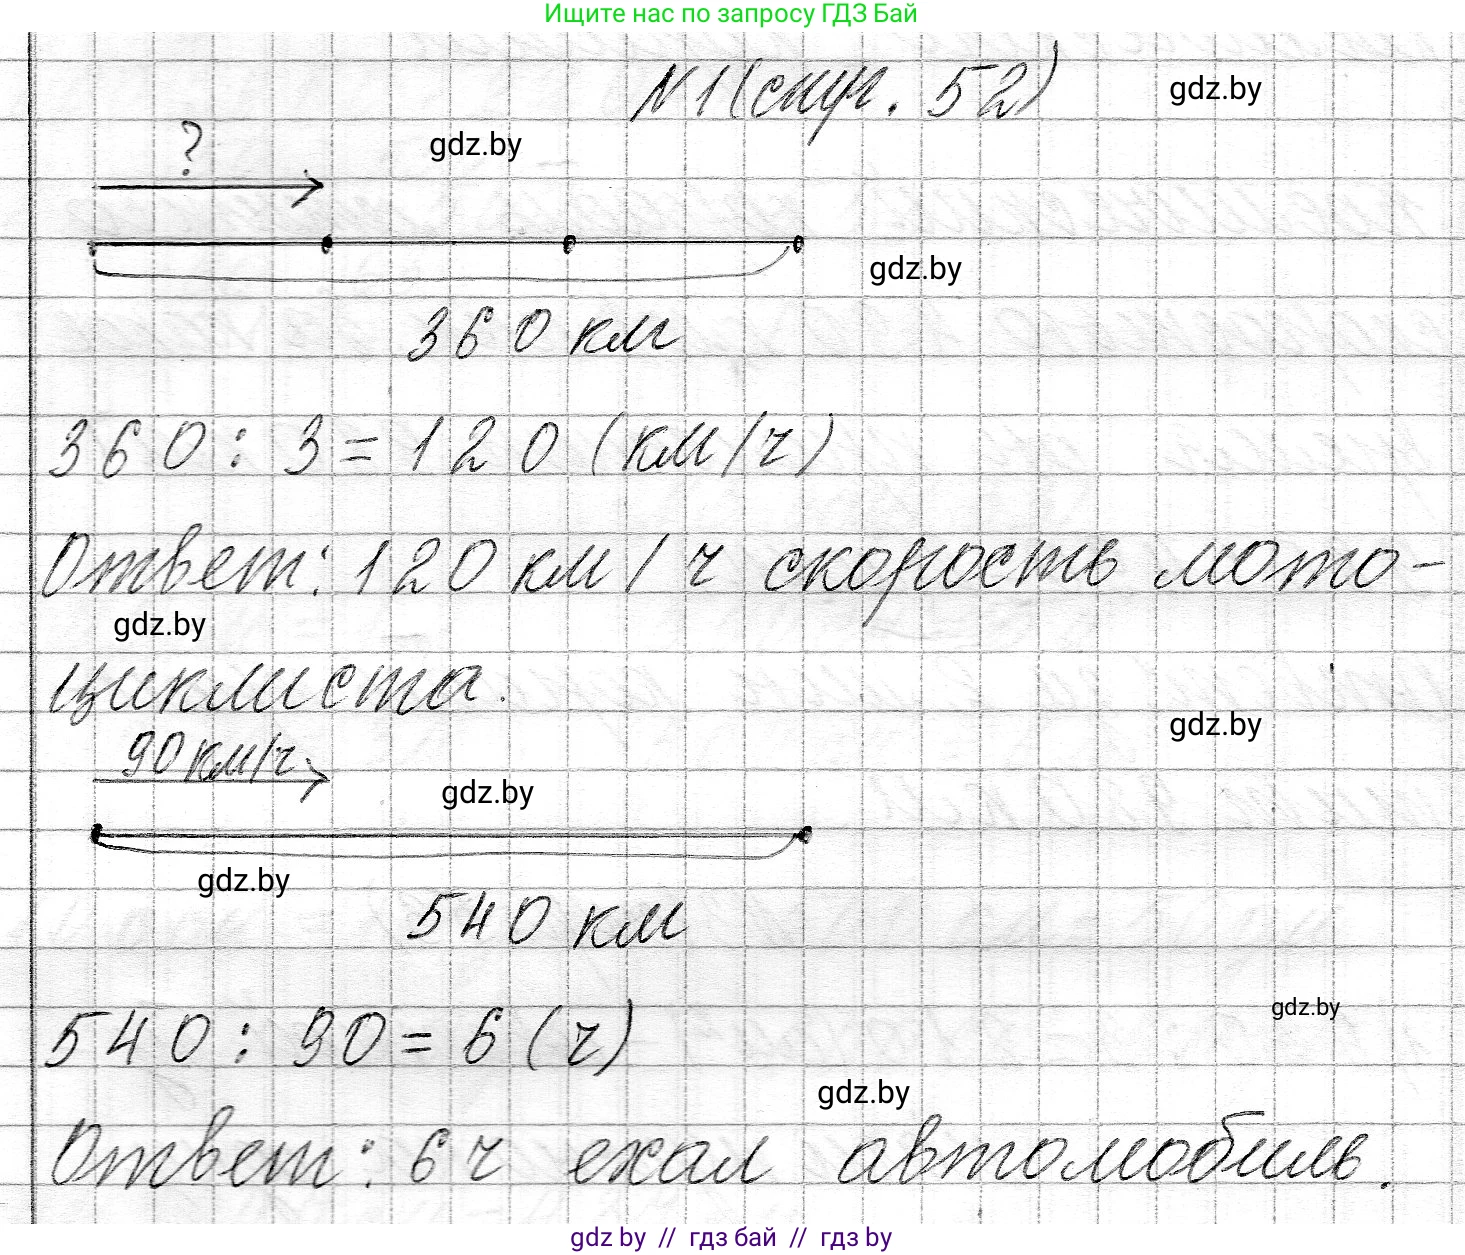 Ищите нас по запросу ГДЗ Бай
№1(стр. 52)
gdz.by
?
gdz.by
gdz.by
360 км
360 : 3 = 120 (км/ч)
Ответ: 120 км/ч скорость мото-
gdz.by
циклиста.
gdz.by
90 км/ч
gdz.by
gdz.by
540 км
gdz.by
540 : 90 = 6 (ч)
gdz.by
Ответ: 6 ч ехал автомобиль.
gdz by // гдз бай // гдз by